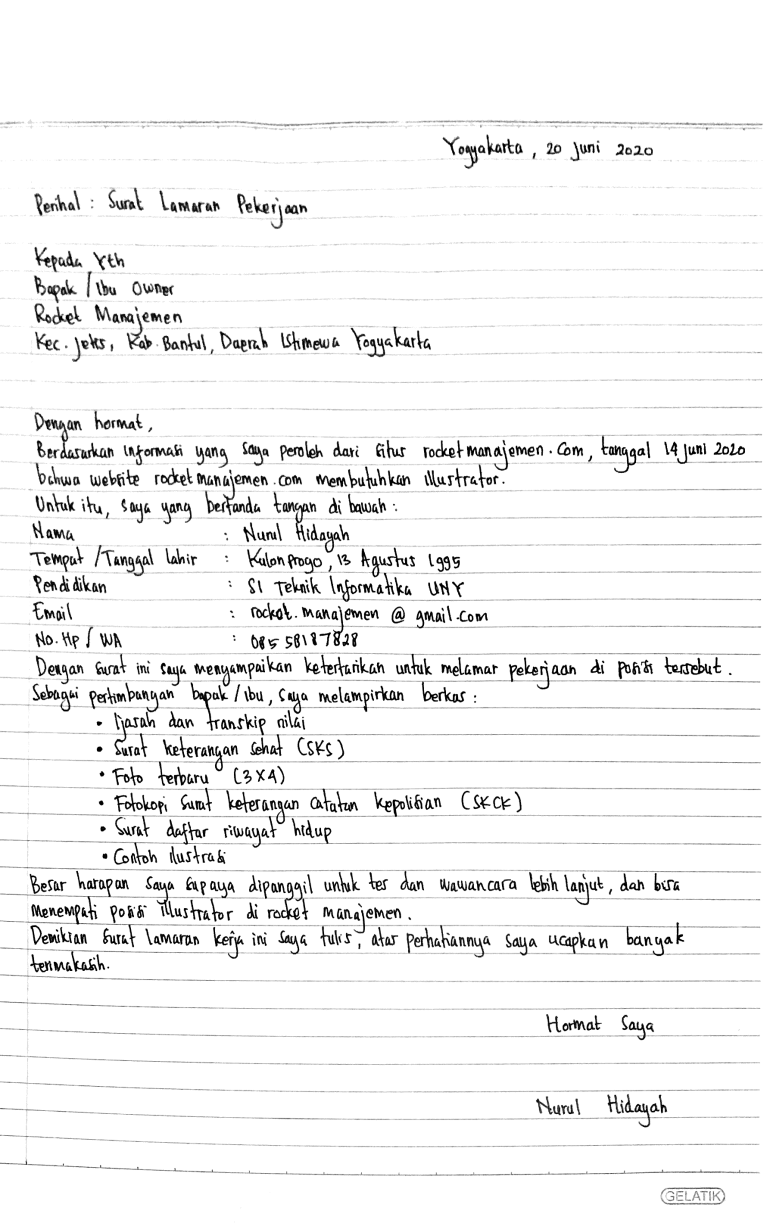 Yogyakarta, 20 Juni 2020
Perihal : Surat Lamaran Pekerjaan
Kepada Yth
Bapak / Ibu Owner
Rocket Manajemen
Kec. Jetis, Kab. Bantul, Daerah Istimewa Yogyakarta
Dengan hormat,
Berdasarkan informasi yang saya peroleh dari situs rocketmanajemen.com, tanggal 14 Juni 2020
bahwa website rocketmanajemen.com membutuhkan illustrator.
Untuk itu, saya yang bertanda tangan di bawah :
Nama : Nurul Hidayah
Tempat / Tanggal lahir : Kulon Progo, 13 Agustus 1995
Pendidikan : S1 Teknik Informatika UNY
Email : rocket.manajemen @ gmail.com
No. Hp / WA : 085 58187828
Dengan surat ini saya menyampaikan ketertarikan untuk melamar pekerjaan di posisi tersebut.
Sebagai pertimbangan bapak / ibu, saya melampirkan berkas :
• Ijasah dan transkip nilai
• Surat keterangan sehat (SKS)
• Foto terbaru (3x4)
• Fotokopi surat keterangan catatan kepolisian (SKCK)
• Surat daftar riwayat hidup
• Contoh ilustrasi
Besar harapan saya supaya dipanggil untuk tes dan wawancara lebih lanjut, dan bisa
menempati posisi illustrator di rocket manajemen.
Demikian surat lamaran kerja ini saya tulis, atas perhatiannya saya ucapkan banyak
terimakasih.
Hormat Saya
Nurul Hidayah
GELATIK